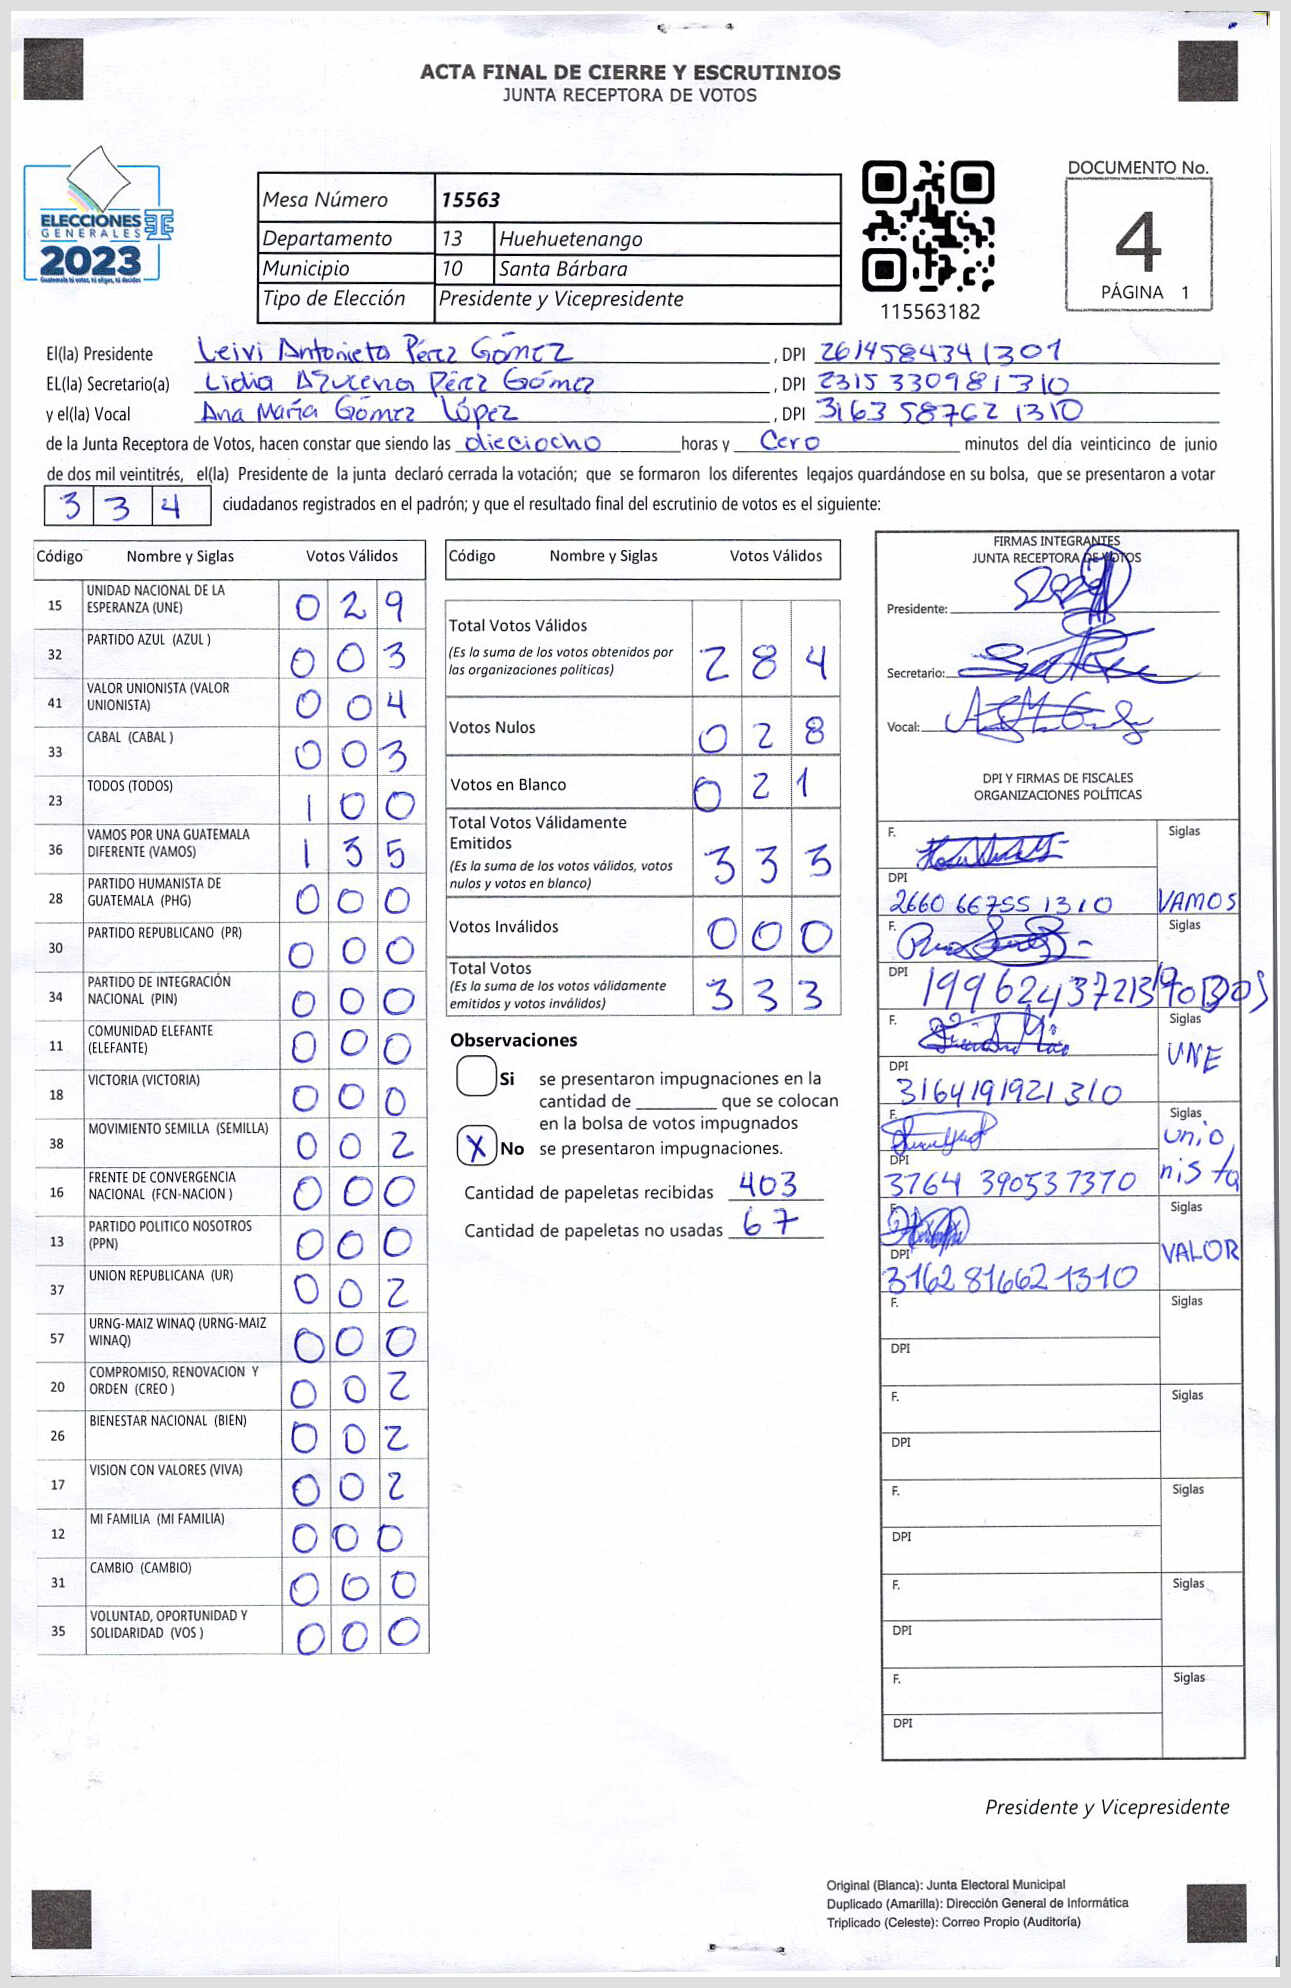 ACTA FINAL DE CIERRE Y ESCRUTINIOS
JUNTA RECEPTORA DE VOTOS
ELECCIONES
GENERALES
2023
Guatemala tú votas, tú eliges, tú decides
Mesa Número 15563
Departamento 13 Huehuetenango
Municipio 10 Santa Bárbara
Tipo de Elección Presidente y Vicepresidente
115563182
DOCUMENTO No.
4
PÁGINA 1
El(la) Presidente Leivi Antonieta Pérez Gómez , DPI 2614584341301
EL(la) Secretario(a) Lidia Azucena Pérez Gómez , DPI 2315 33098 1310
y el(la) Vocal Ana María Gómez López , DPI 3163 58762 1310
de la Junta Receptora de Votos, hacen constar que siendo las dieciocho horas y Cero minutos del día veinticinco de junio
de dos mil veintitrés, el(la) Presidente de la junta declaró cerrada la votación; que se formaron los diferentes legajos guardándose en su bolsa, que se presentaron a votar
334 ciudadanos registrados en el padrón; y que el resultado final del escrutinio de votos es el siguiente:
Código Nombre y Siglas Votos Válidos
15 UNIDAD NACIONAL DE LA ESPERANZA (UNE) 029
32 PARTIDO AZUL (AZUL ) 003
41 VALOR UNIONISTA (VALOR UNIONISTA) 004
33 CABAL (CABAL ) 003
23 TODOS (TODOS) 100
36 VAMOS POR UNA GUATEMALA DIFERENTE (VAMOS) 135
28 PARTIDO HUMANISTA DE GUATEMALA (PHG) 000
30 PARTIDO REPUBLICANO (PR) 000
34 PARTIDO DE INTEGRACIÓN NACIONAL (PIN) 000
11 COMUNIDAD ELEFANTE (ELEFANTE) 000
18 VICTORIA (VICTORIA) 000
38 MOVIMIENTO SEMILLA (SEMILLA) 002
16 FRENTE DE CONVERGENCIA NACIONAL (FCN-NACION ) 000
13 PARTIDO POLITICO NOSOTROS (PPN) 000
37 UNION REPUBLICANA (UR) 002
57 URNG-MAIZ WINAQ (URNG-MAIZ WINAQ) 000
20 COMPROMISO, RENOVACION Y ORDEN (CREO ) 002
26 BIENESTAR NACIONAL (BIEN) 002
17 VISION CON VALORES (VIVA) 002
12 MI FAMILIA (MI FAMILIA) 000
31 CAMBIO (CAMBIO) 000
35 VOLUNTAD, OPORTUNIDAD Y SOLIDARIDAD (VOS ) 000
Código Nombre y Siglas Votos Válidos
Total Votos Válidos
(Es la suma de los votos obtenidos por
las organizaciones políticas) 284
Votos Nulos 028
Votos en Blanco 021
Total Votos Válidamente
Emitidos
(Es la suma de los votos válidos, votos
nulos y votos en blanco) 333
Votos Inválidos 000
Total Votos
(Es la suma de los votos válidamente
emitidos y votos inválidos) 333
Observaciones
Si se presentaron impugnaciones en la
cantidad de ________ que se colocan
en la bolsa de votos impugnados
X No se presentaron impugnaciones.
Cantidad de papeletas recibidas 403
Cantidad de papeletas no usadas 67
FIRMAS INTEGRANTES
JUNTA RECEPTORA DE VOTOS
Presidente:
Secretario:
Vocal:
DPI Y FIRMAS DE FISCALES
ORGANIZACIONES POLÍTICAS
F. Siglas
DPI
2660 66755 1310 VAMOS
F. Siglas
DPI
F. Siglas
UNE
DPI
3164191921310
F. Siglas
Unio
nista
DPI
3764 390537370
F. Siglas
VALOR
DPI
3162 81662 1310
F. Siglas
DPI
F. Siglas
DPI
F. Siglas
DPI
F. Siglas
DPI
F. Siglas
DPI
Presidente y Vicepresidente
Original (Blanca): Junta Electoral Municipal
Duplicado (Amarilla): Dirección General de Informática
Triplicado (Celeste): Correo Propio (Auditoría)